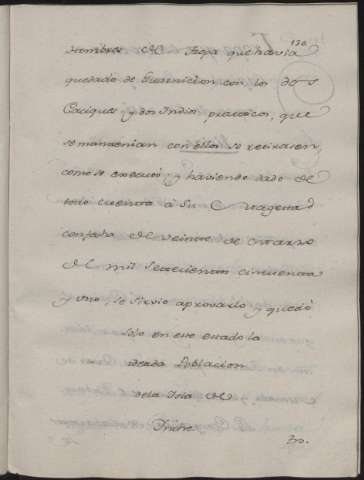 130.
hombres de Tropa que havia
quedado de Guarnicion con los dos
Caciques y dos Indios practicos, que
se mantenian con ellos se retirasen,
como se executó; y haviendo dado de
todo cuenta á Su Magestad
con fecha de veinte de Marzo
de mil setecientos cincuenta
y uno, se sirvio aprovarlo y quedó
solo en este estado la
ideada Poblacion
de la Isla de